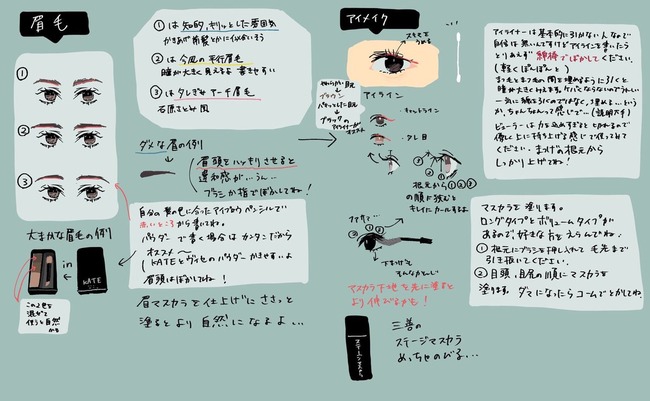 眉毛
①
②
③
①は知的,キリッとした雰囲気
かきあげ前髪とかに似合いそう
②は今風の平行眉毛
瞳が大きく見えるよ 書きやすい
③はタレぎみアーチ眉毛
石原さとみ風
ダメな眉の例
眉頭をハッキリさせると
違和感が...うん...
ブラシか指でぼかしてね!
自分の髪の色に合ったアイブロウペンシルで
赤いところから書いてね。
パウダーで書く場合はカンタンだから
オススメ〜
(KATEとヴィセのパウダーかきやすいよ
眉頭はぼかしてね!
大まかな眉毛の例
in
KATE
この2色を
混ぜて
使うと自然
かな
眉マスカラを仕上げにささっと
塗るとより自然になるよ...
アイメイク
スキマを
うめる
やわらかい目元
ブラウン
パキッとした目元
ブラックの
アイライナーが
オススメ
アイライン
キャットライン
タレ目
① ② ③
根元から①②③
の順に挟むと
キレイにカールするよ
マスカラ
下まつげも
そんなかんじ
マスカラ下地を先に塗ると
より伸びるかも!
三善の
ステージマスカラ
めっちゃのびる...
アイライナーは基本的に引かない人なので
自信は無いんですけどアイラインを書いたら
とりあえず綿棒でぼかしてください。
(軽くぽーんぽーんと)
まつ毛とまつ毛の間を埋めるように引くと
瞳が大きく見えます。ケバくならないのでうれしい
一気に線を引くのではなく、埋める...という
か、ちょんちょんって感じで...(説明下手)
ビューラーは力を込めすぎると切れるので
優しく上に持ち上げる感じで使ってみて
ください。まつげの根元から
しっかり上げてね!
マスカラを塗ります。
ロングタイプとボリュームタイプが
あるので好きな方をえらんでね。
①根元にブラシを押し入れて毛先まで
引き抜いてください。
②目頭、目尻の順にマスカラを
塗ります。ダマになったらコームでとかしてね。